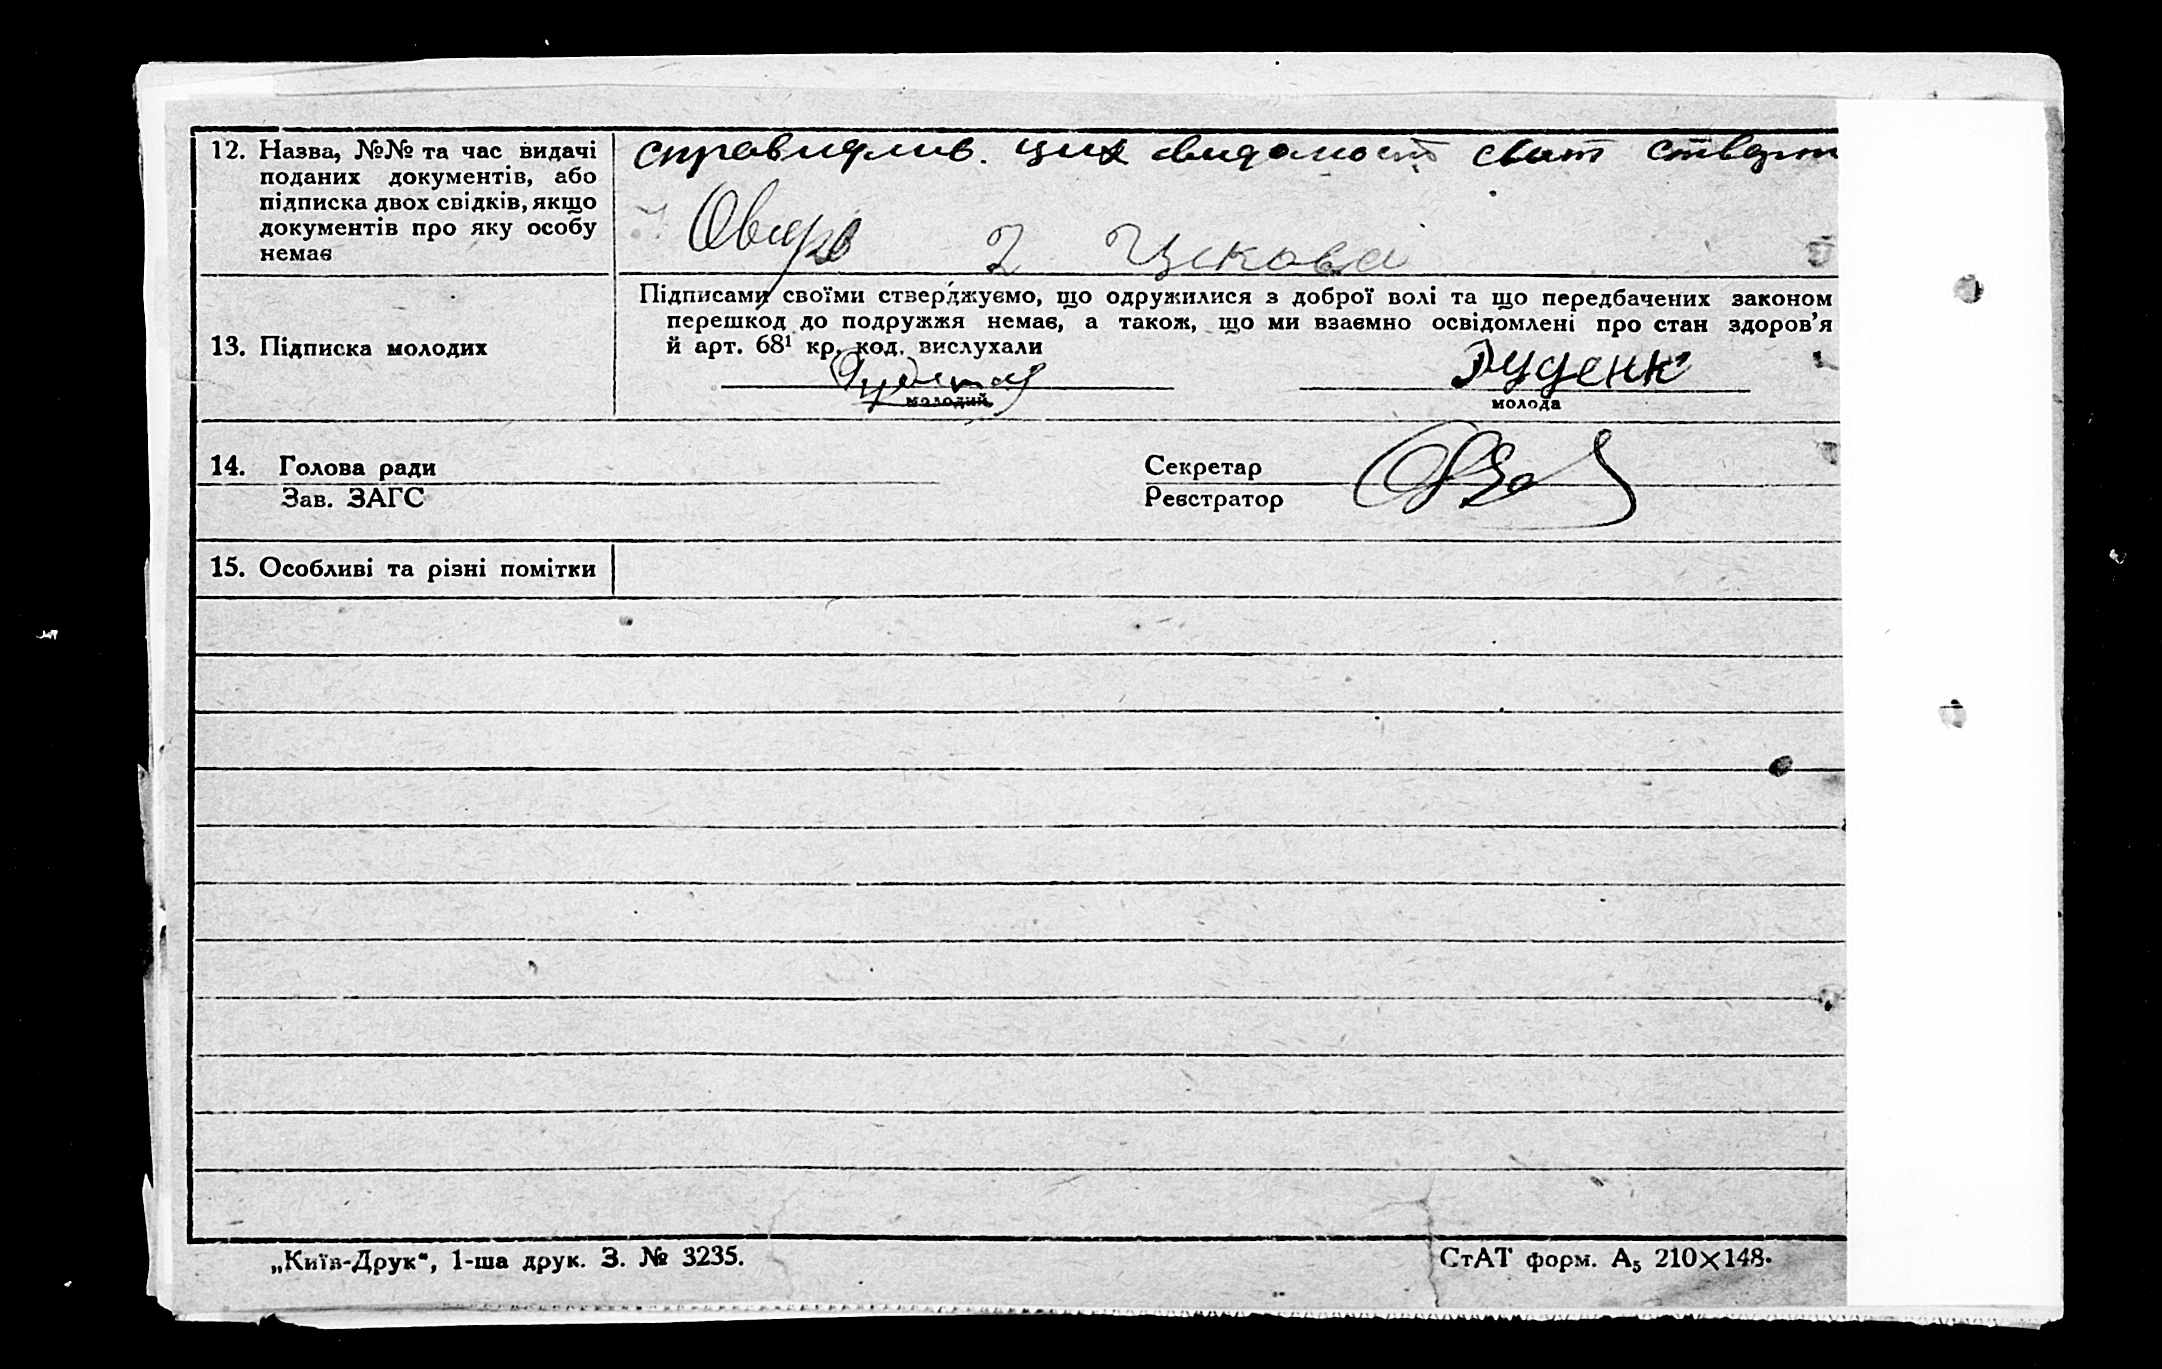 12. Назва, №№ та час видачі
поданих документів, або
підписка двох свідків, якщо
документів про яку особу
немає
справидлив. цих
2
13. Підписка молодих
Підписами своїми стверджуємо, що одружилися з доброї волі та що передбачених законом
перешкод до подружжя немає, а також, що ми взаємно освідомлені про стан здоров’я
й арт. 68¹ кр. код. вислухали
Руденк
молодий
молода
14. Голова ради
Зав. ЗАГС
Секретар
Реєстратор
15. Особливі та різні помітки
„Київ-Друк“, 1-ша друк. З. № 3235.
СтАТ форм. А₅ 210×148.